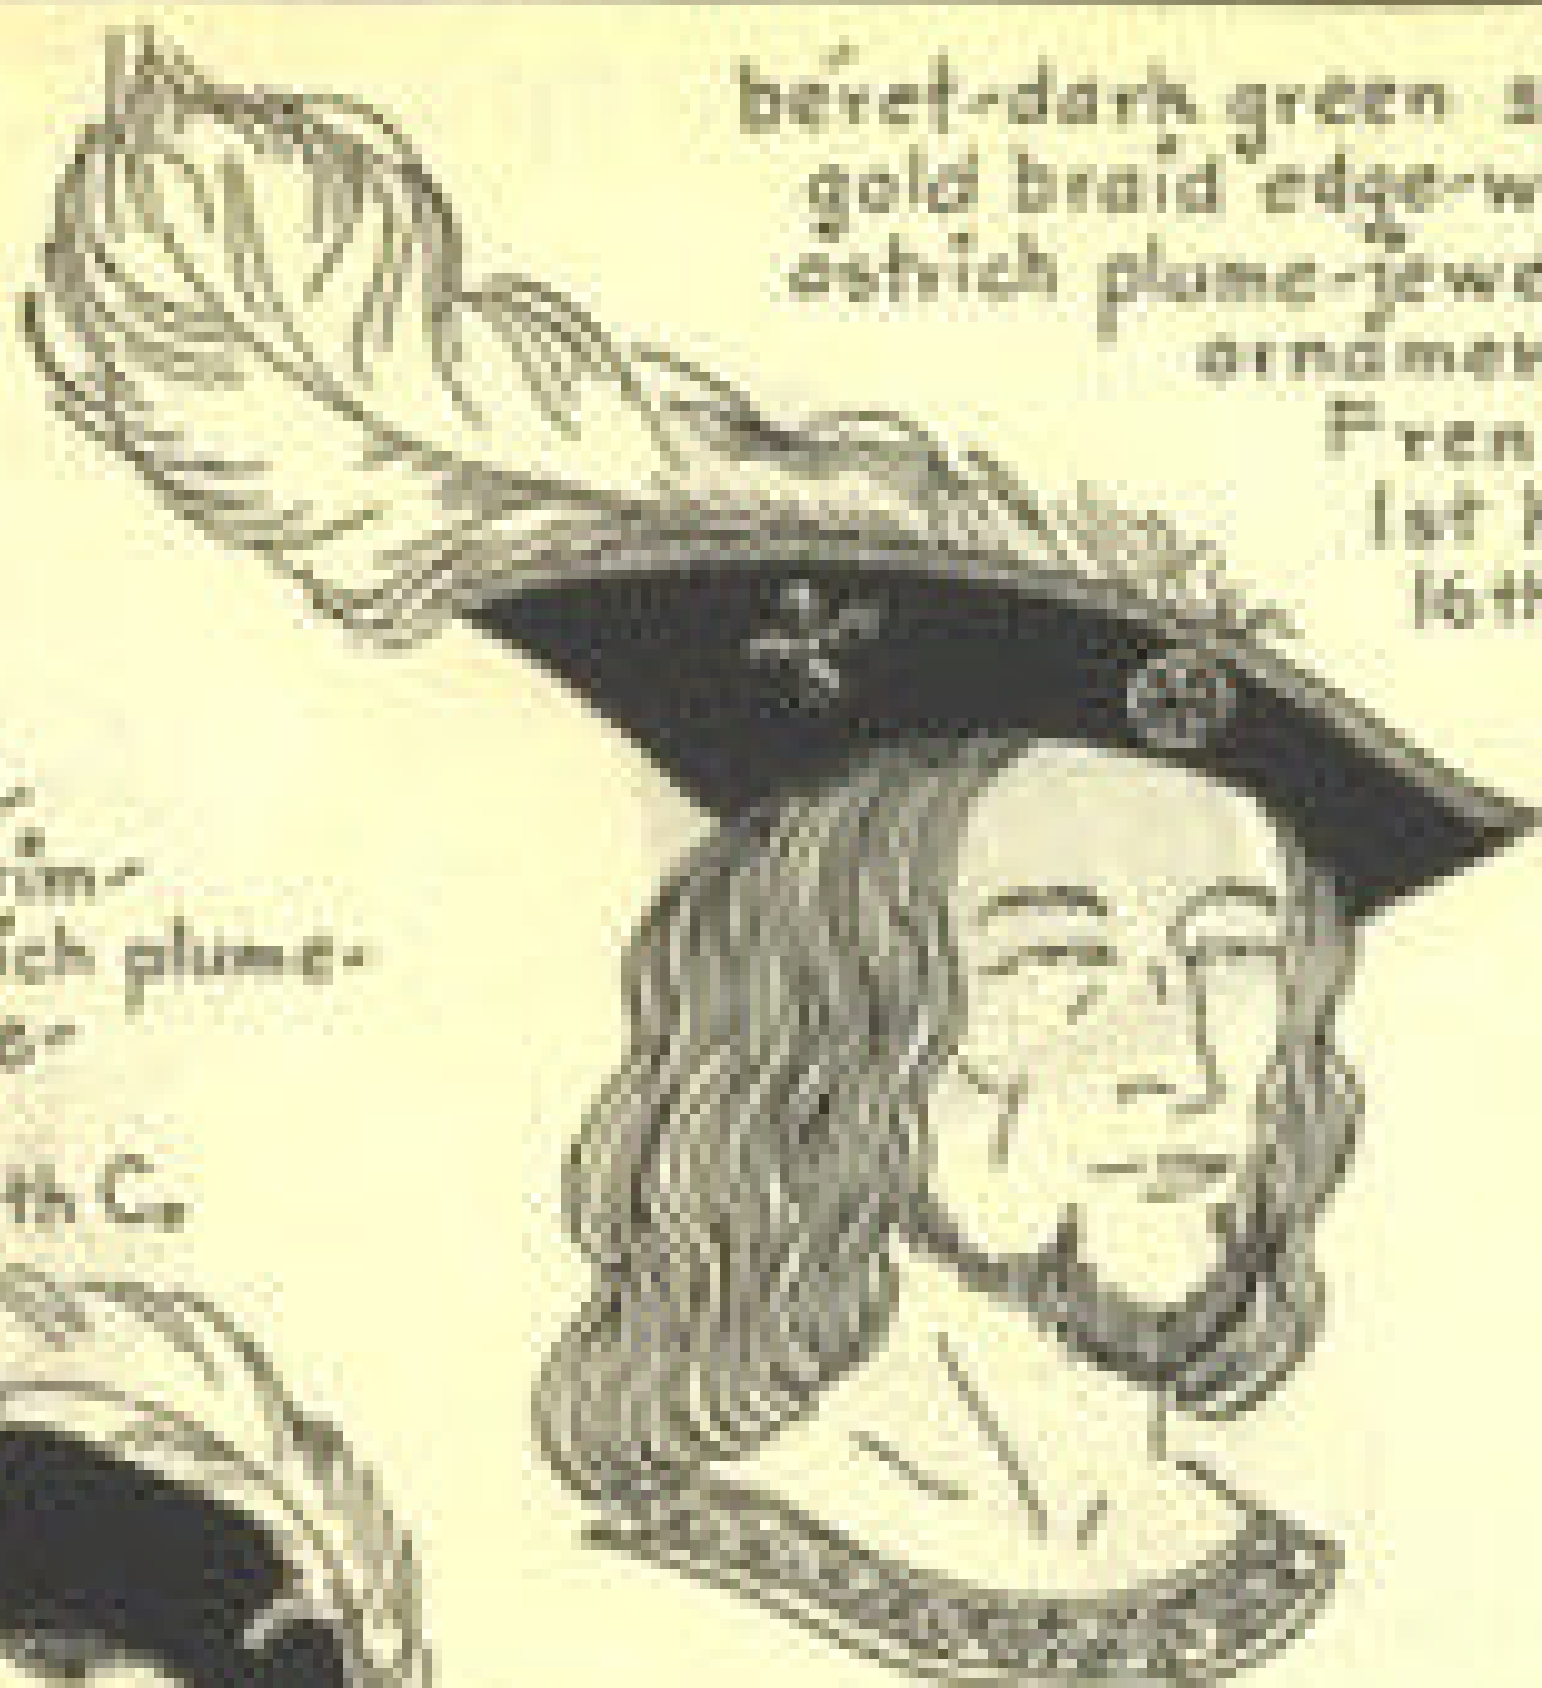 beret-dark green s
gold braid edge-w
ostrich plume-jewe
ornamen
Fren
1st h
16th
rim-
ich plume-
e-
th C.